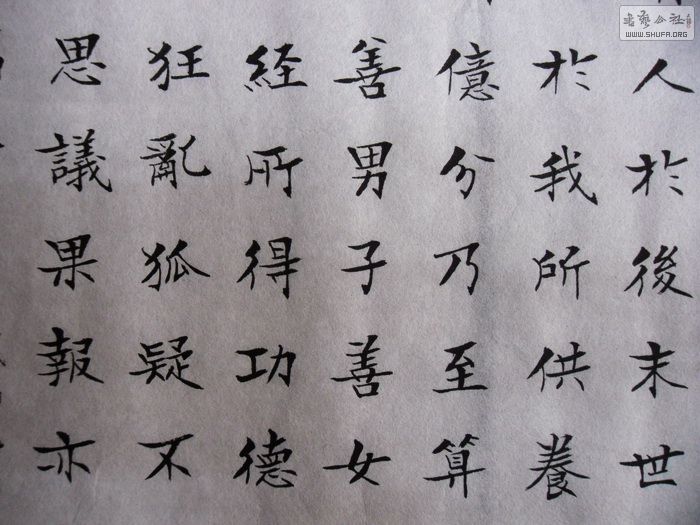 人於後末世
於我所供養
億分乃至算
善男子善女
経所得功德
狂亂狐疑不
思議果報亦
書藝公社
WWW.SHUFA.ORG